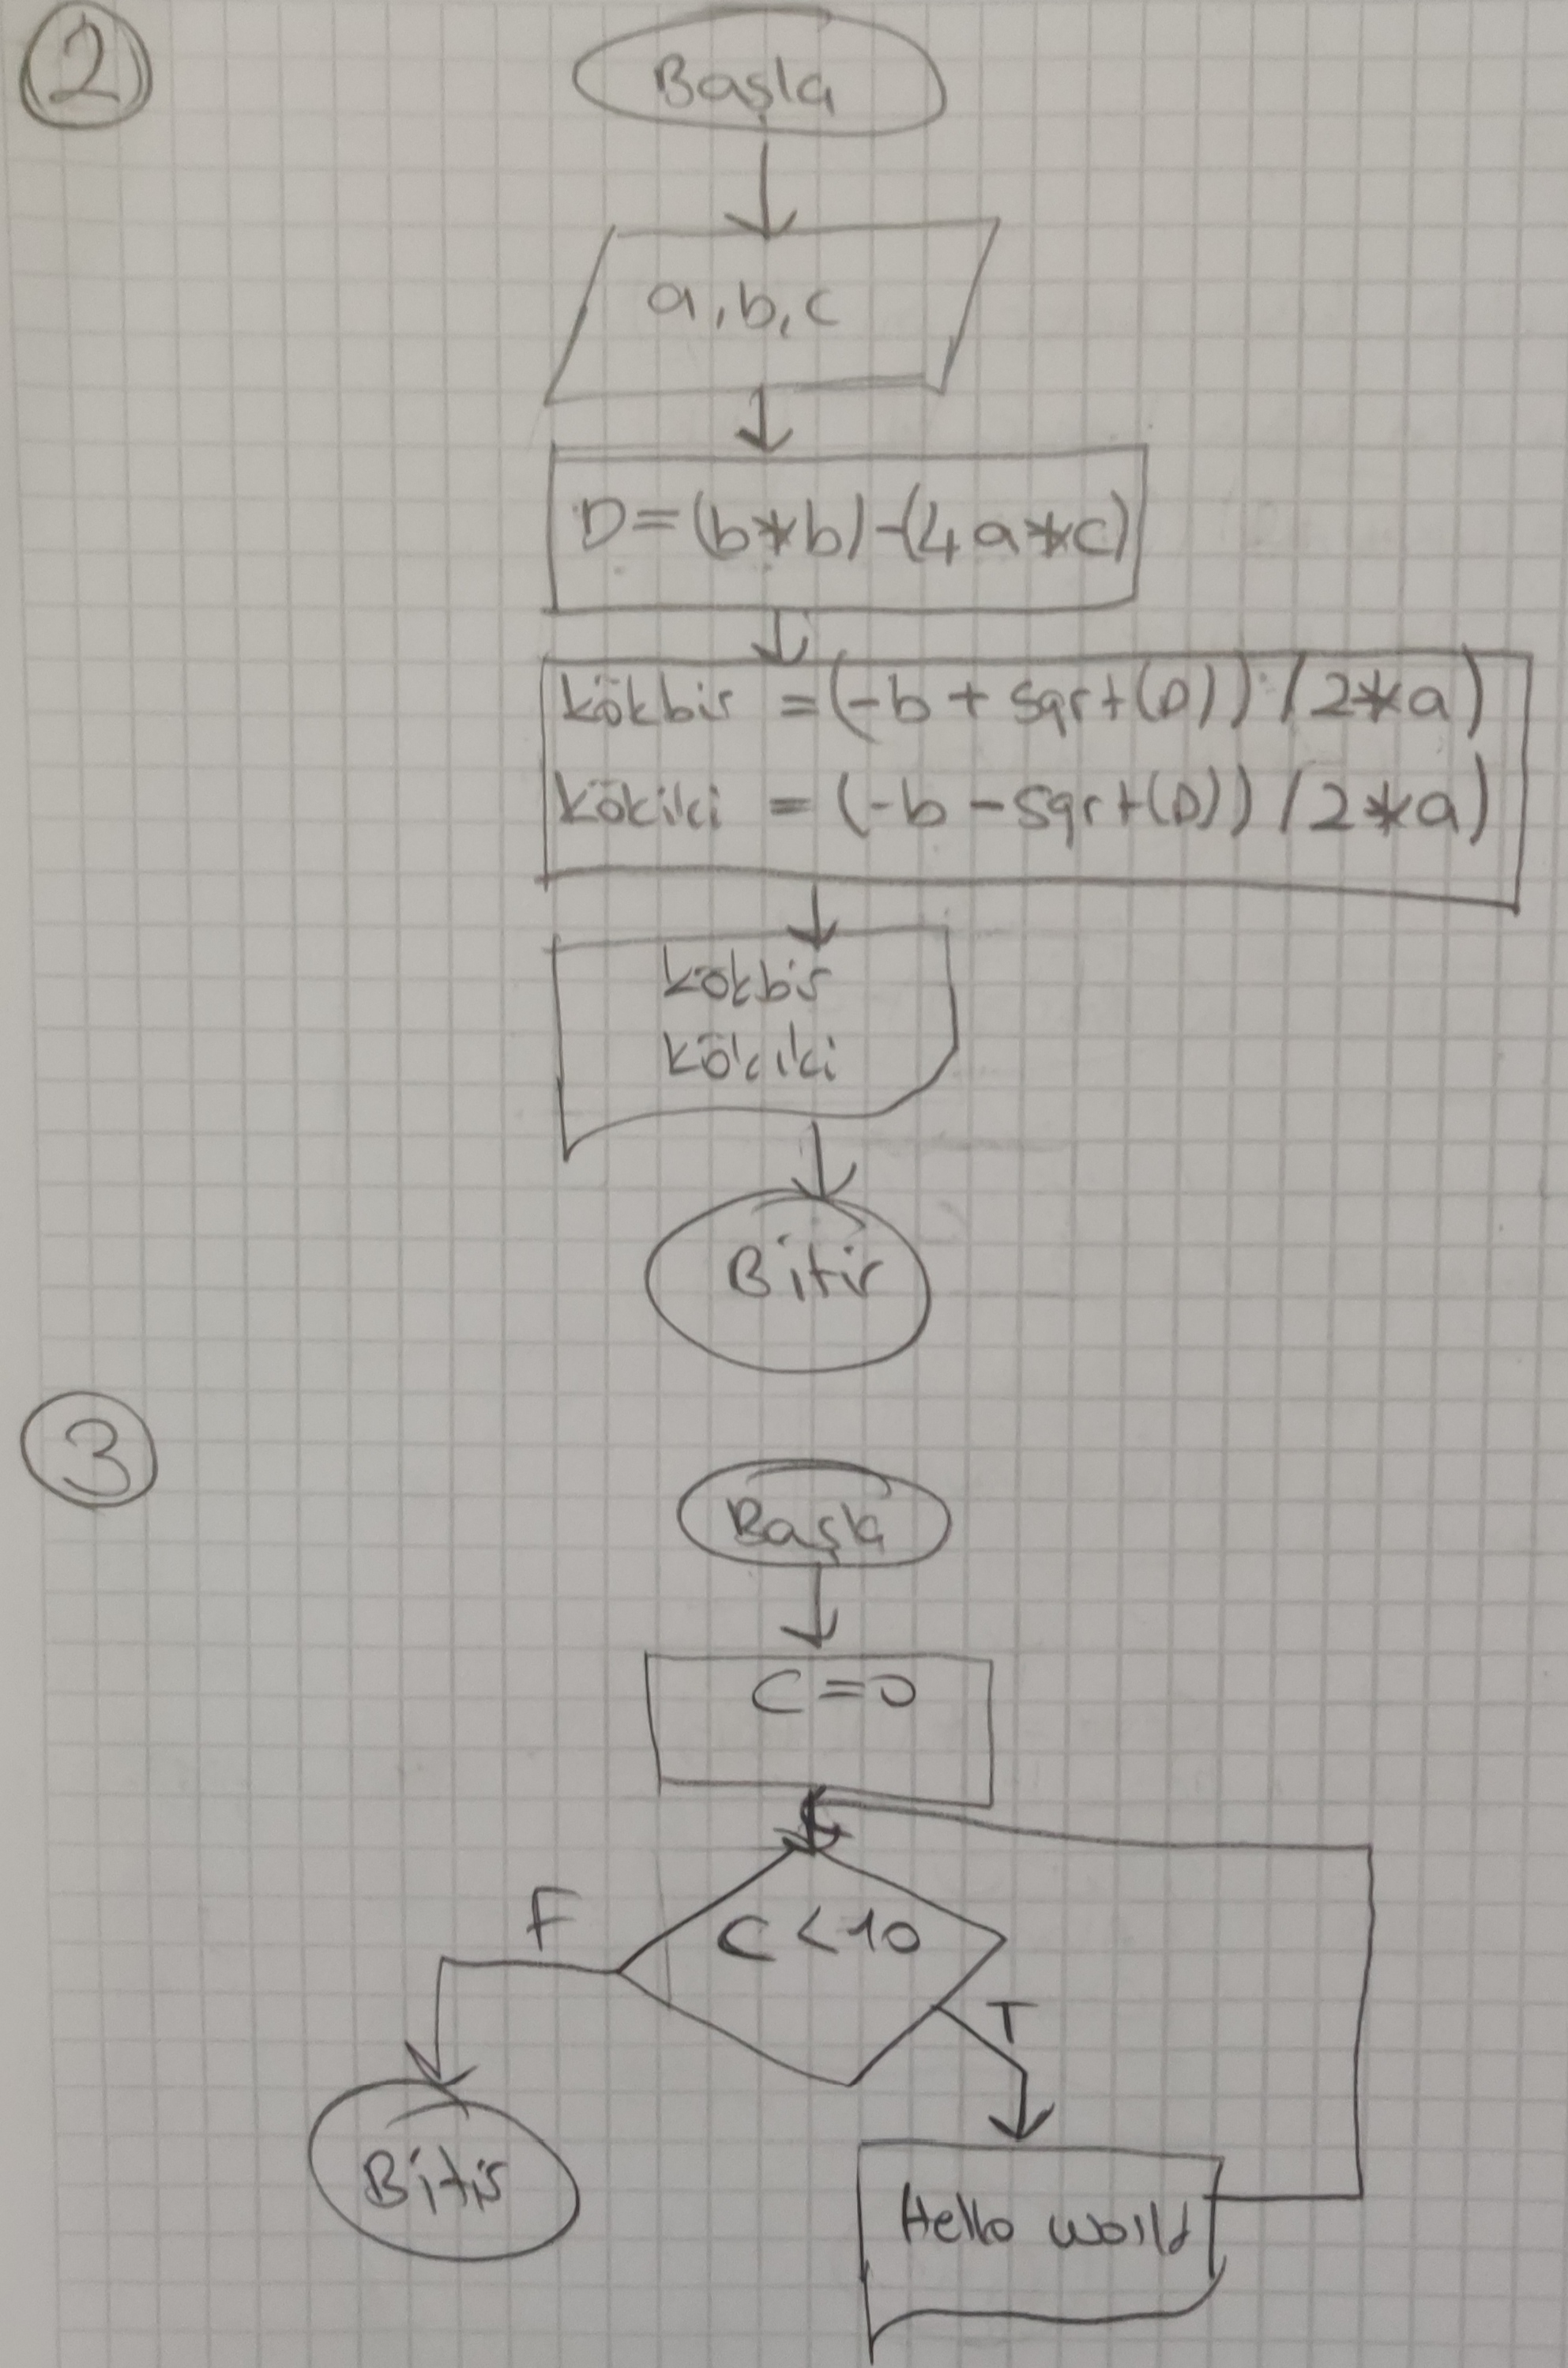 2
Başla
a,b,c
D=(b*b)-(4a*c)
kökbir =(-b + sqrt(D)) /2*a)
kökiki = (-b - sqrt(D)) /2*a)
kökbir
kökiki
Bitir
3
Başla
C=0
C<10
F
T
Bitir
Hello world